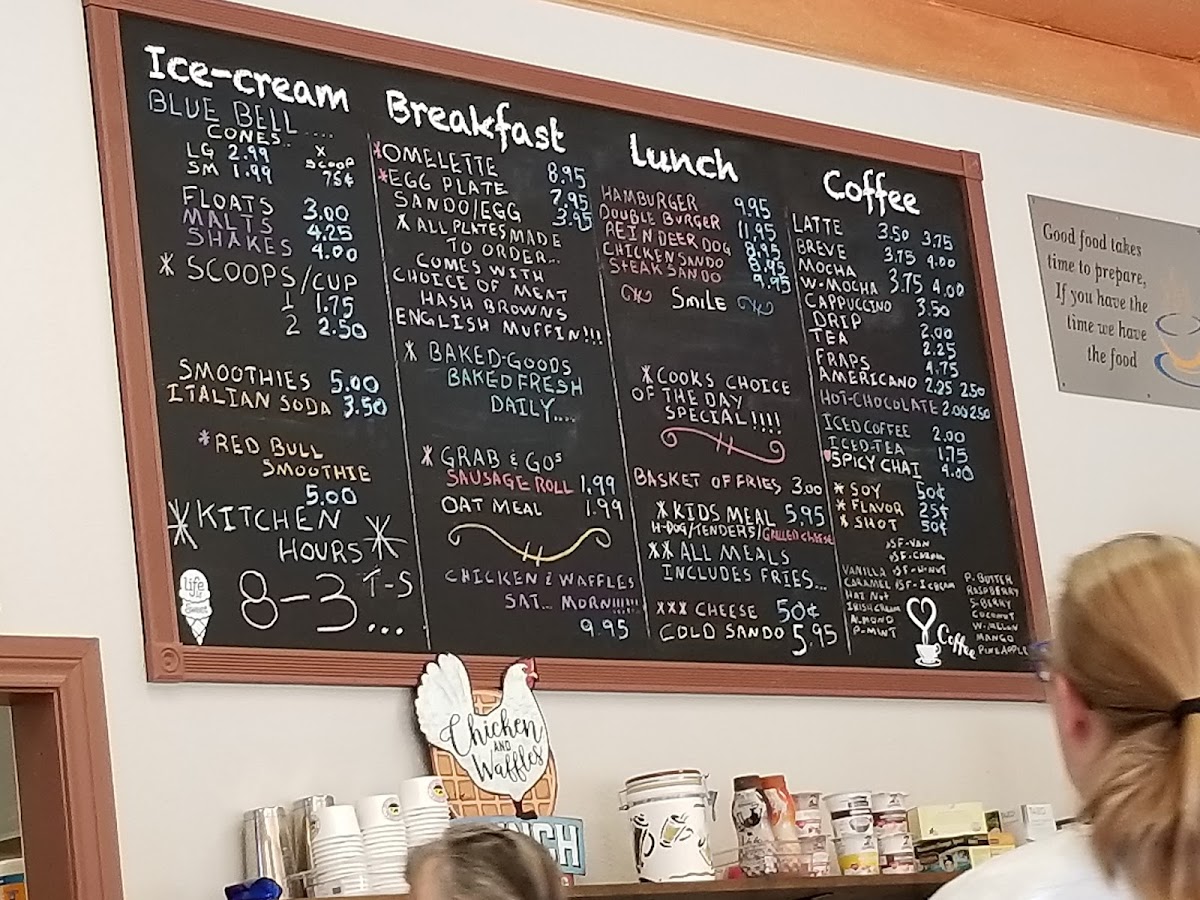 Ice-cream
BLUE BELL....
CONES..
LG 2.99 X SCOOP
SM 1.99 75¢
FLOATS 3.00
MALTS 4.25
SHAKES 4.00
* SCOOPS/CUP
1 1.75
2 2.50
SMOOTHIES 5.00
ITALIAN SODA 3.50
*RED BULL
SMOOTHIE
5.00
*KITCHEN
HOURS*
8-3 T-S
...
life is sweet
Breakfast
*OMELETTE 8.95
*EGG PLATE 7.95
SANDO/EGG 3.95
* ALL PLATES MADE
TO ORDER...
COMES WITH
CHOICE OF MEAT
HASH BROWNS
ENGLISH MUFFIN!!!
* BAKED-GOODS
BAKED FRESH
DAILY....
* GRAB & GOS
SAUSAGE ROLL 1.99
OAT MEAL 1.99
CHICKEN & WAFFLES
SAT... MORN!!!!!!
9.95
Lunch
HAMBURGER 9.95
DOUBLE BURGER 11.95
REINDEER DOG 8.95
CHICKEN SANDO 8.95
STEAK SANDO 9.95
SMILE
*COOKS CHOICE
OF THE DAY
SPECIAL!!!!
BASKET OF FRIES 3.00
*KIDS MEAL 5.95
H-DOG/TENDERS/GRILLED CHEESE
**ALL MEALS
INCLUDES FRIES...
XXX CHEESE 50¢
COLD SANDO 5.95
Coffee
LATTE 3.50 3.75
BREVE 3.75 4.00
MOCHA
W-MOCHA 3.75 4.00
CAPPUCCINO 3.50
DRIP 2.00
TEA 2.25
FRAPS 4.75
AMERICANO 2.25 2.50
HOT-CHOCOLATE 2.00 2.50
ICED COFFEE 2.00
ICED-TEA 1.75
SPICY CHAI 4.00
* SOY 50¢
* FLAVOR 25¢
* SHOT 50¢
VANILLA
CARAMEL
HAZ NUT
IRISH CREAM
ALMOND
P-MINT
P. BUTTER
RASPBERRY
S-BERRY
COCONUT
W-MELLON
MANGO
PINEAPPLE
Coffee
Good food takes
time to prepare,
If you have the
time we have
the food
Chicken
AND
Waffles